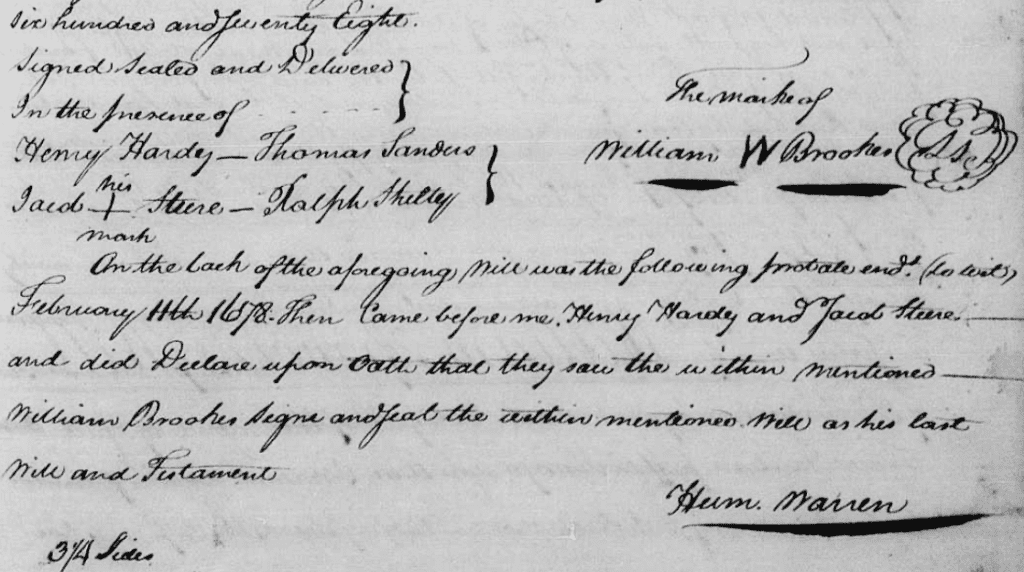 Six hundred and Seventy Eight.
Signed Sealed and Delivered }
In the presence of
The marke of
Henry Hardy — Thomas Sanders }
William W Brookes
his
Jacd + Steere — Ralph Shelley
mark
On the back of the aforegoing Will was the following probate end.d (to wit)
February 11th 1678. Then Came before me Henry Hardy and Jacd Steere
and did Declare upon Oath that they saw the within mentioned
William Brookes Signe and Seal the within mentioned Will as his last
Will and Testament
Hum. Warren
3 1/4 Sides.